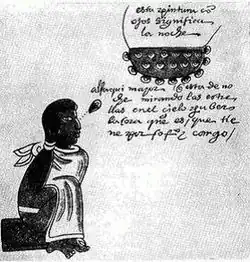 esta pintura cō
ojos significa
la noche
alfaqui mayor / esta de no
che mirando las estre
llas enel cielo
la ora que es / que tie
ne por ofº y cargo /